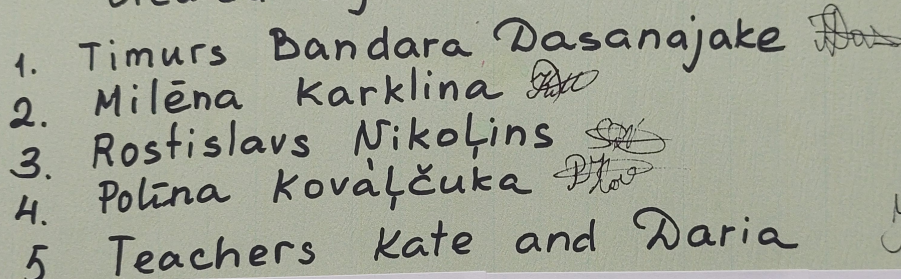 1. Timurs Bandara Dasanajake
2. Milēna Karklina
3. Rostislavs Nikoļins
4. Polīna Kovaļčuka
5 Teachers Kate and Daria